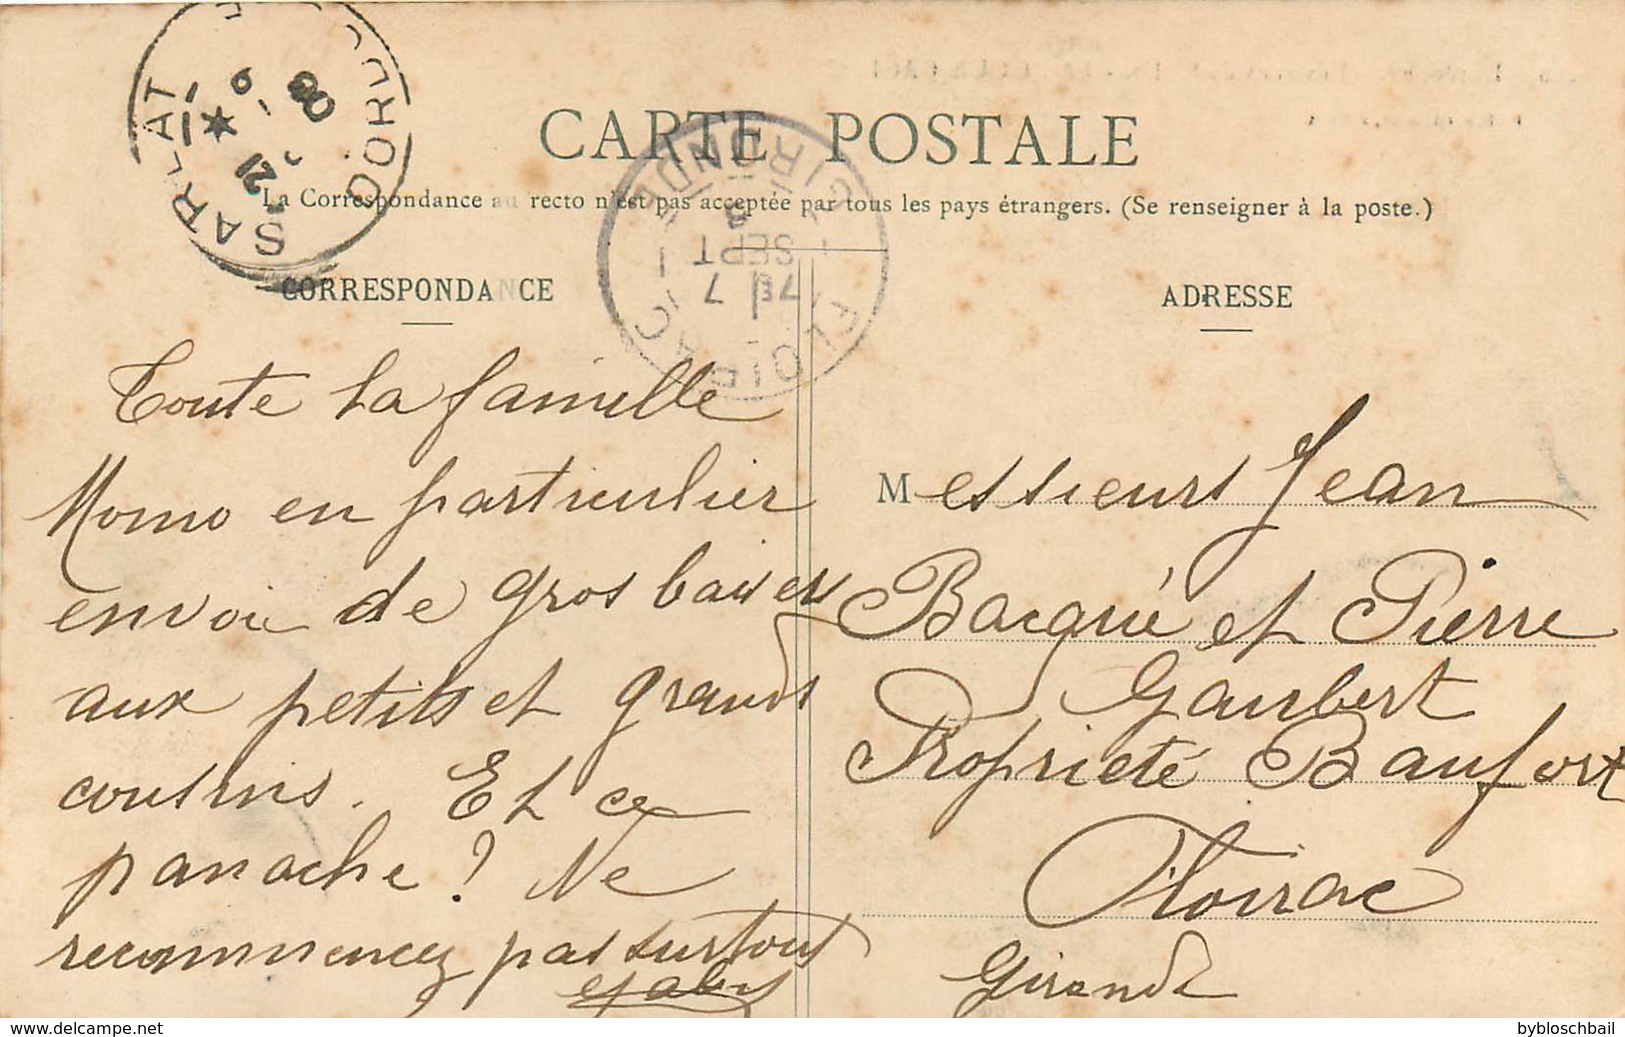 SARLAT
DORDOGNE
21
6 - 9
08
CARTE POSTALE
La Correspondance au recto n'est pas acceptée par tous les pays étrangers. (Se renseigner à la poste.)
FLOIRAC
GIRONDE
7E
7
SEPT
CORRESPONDANCE
ADRESSE
Toute la famille
Momo en particulier
envoie de gros baisers
aux petits et grands
cousins. Et ce
panache ? Ne
recommencez pas surtout
Gaby
Messieurs Jean
Bacqué et Pierre
Gaubert
Proprieté Baufort
Floirac
Gironde
www.delcampe.net
bybloschbail